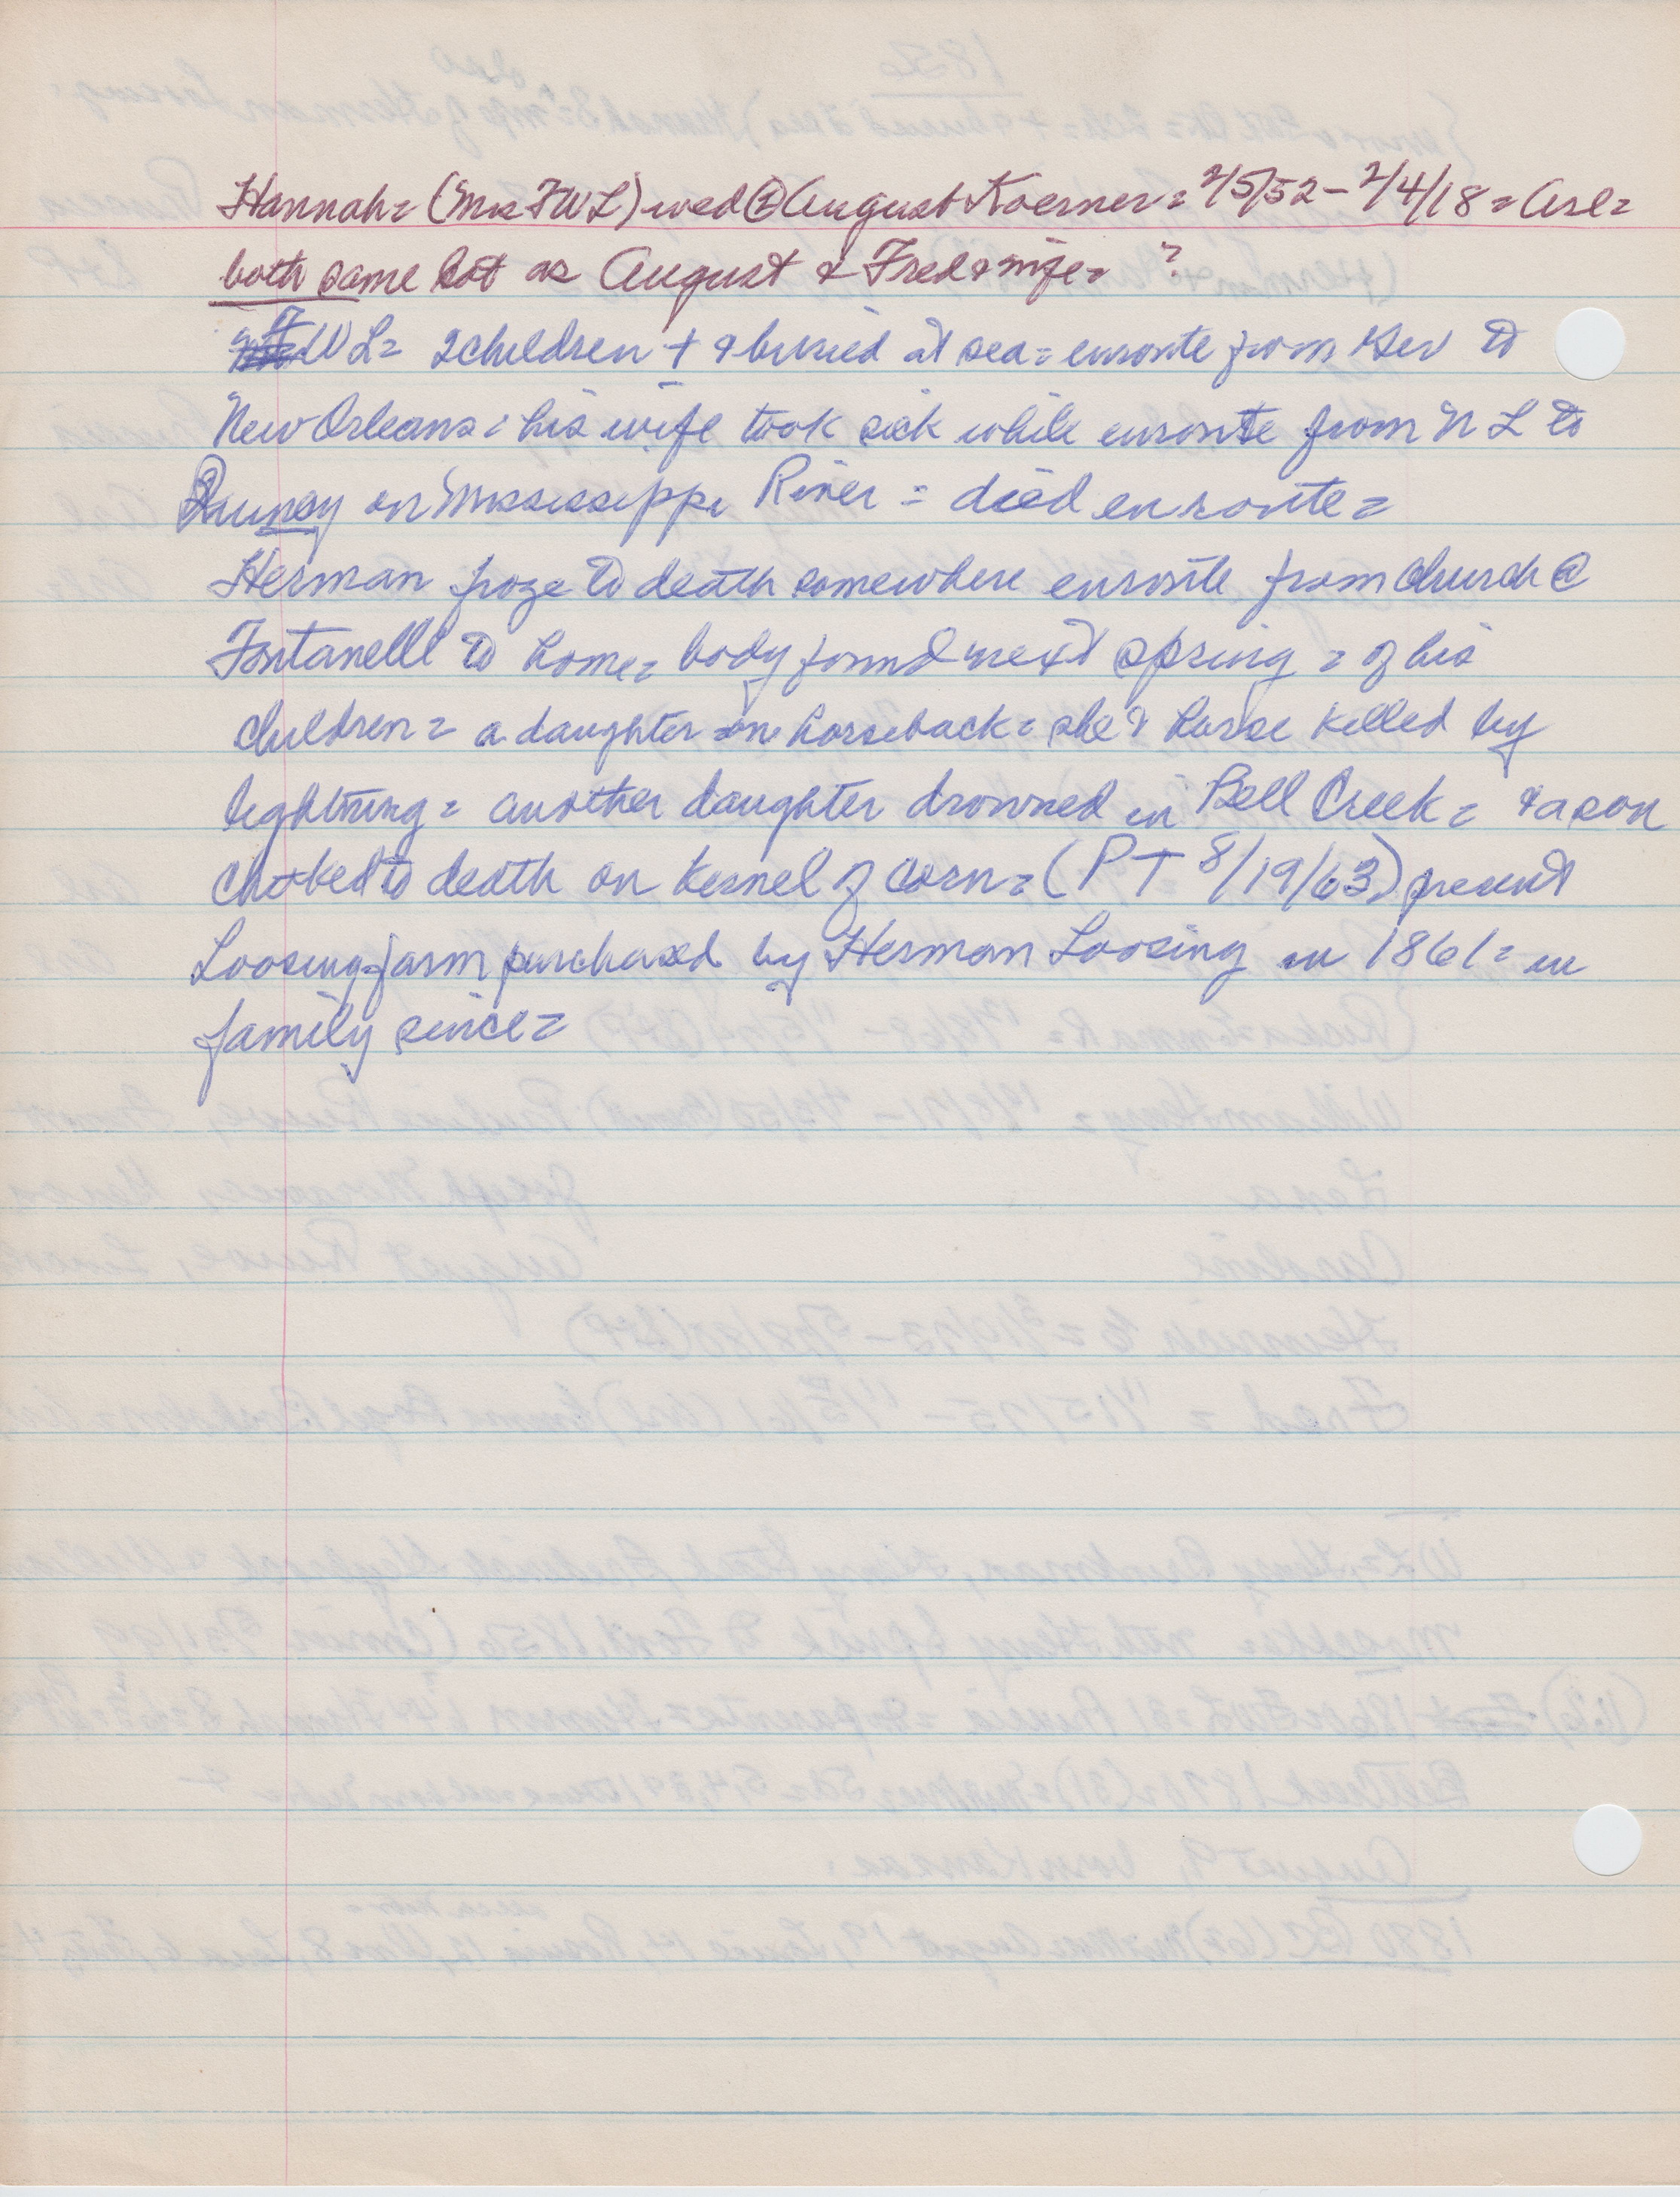 Hannah= (Mrs FWL) wed ② August Koerner= 2/5/52 - 2/4/18 = Arl=
both same lot as August & Fred & wife= ?
FWL= 2 children + & buried at sea= enroute from Ger to
New Orleans= his wife took sick while enroute from N L to
Quincy on Mississippi River = died enroute=
Herman froze to death somewhere enroute from church @
Fontanelle to home= body found next spring = of his
children= a daughter on horseback= she & horse killed by
lightning= another daughter drowned in Bell Creek= & a son
choked to death on kernel of corn= (PT 8/19/63) present
Loosing farm purchased by Herman Loosing in 1861= in
family since=